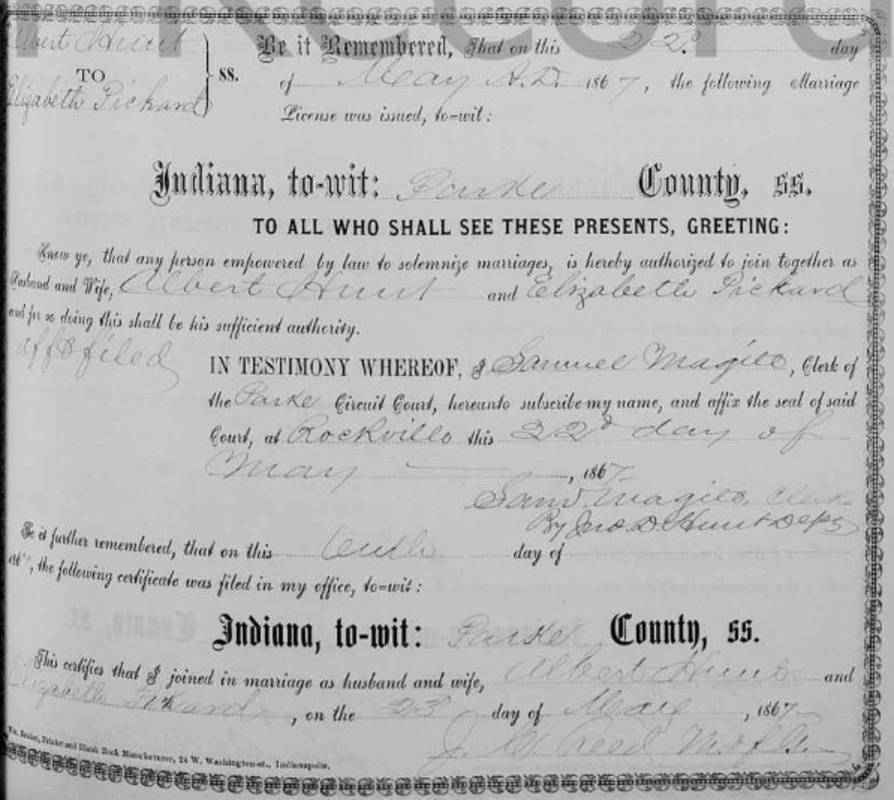 Albert Hunt
TO
Elizabeth Pickard
} ss.
Be it Remembered, That on this 22d day
of May A.D. 1867, the following Marriage
License was issued, to-wit:
Indiana, to-wit: Parke County, ss.
TO ALL WHO SHALL SEE THESE PRESENTS, GREETING:
Know ye, that any person empowered by law to solemnize marriages, is hereby authorized to join together as
Husband and Wife, Albert Hunt and Elizabeth Pickard
and for so doing this shall be his sufficient authority.
aff filed
IN TESTIMONY WHEREOF, I Samuel Magill, Clerk of
the Parke Circuit Court, hereunto subscribe my name, and affix the seal of said
Court, at Rockville this 22d day of
May, 1867
Saml Magill Clerk
By Jno. D. Hunt Dep
Be it further remembered, that on this day of
186, the following certificate was filed in my office, to-wit:
Indiana, to-wit: Parke County, ss.
This certifies that I joined in marriage as husband and wife, Albert Hunt and
Elizabeth Pickard, on the 23 day of May, 1867
Reed
Printer and Blank Book Manufacturer, 24 W. Washington-st., Indianapolis.